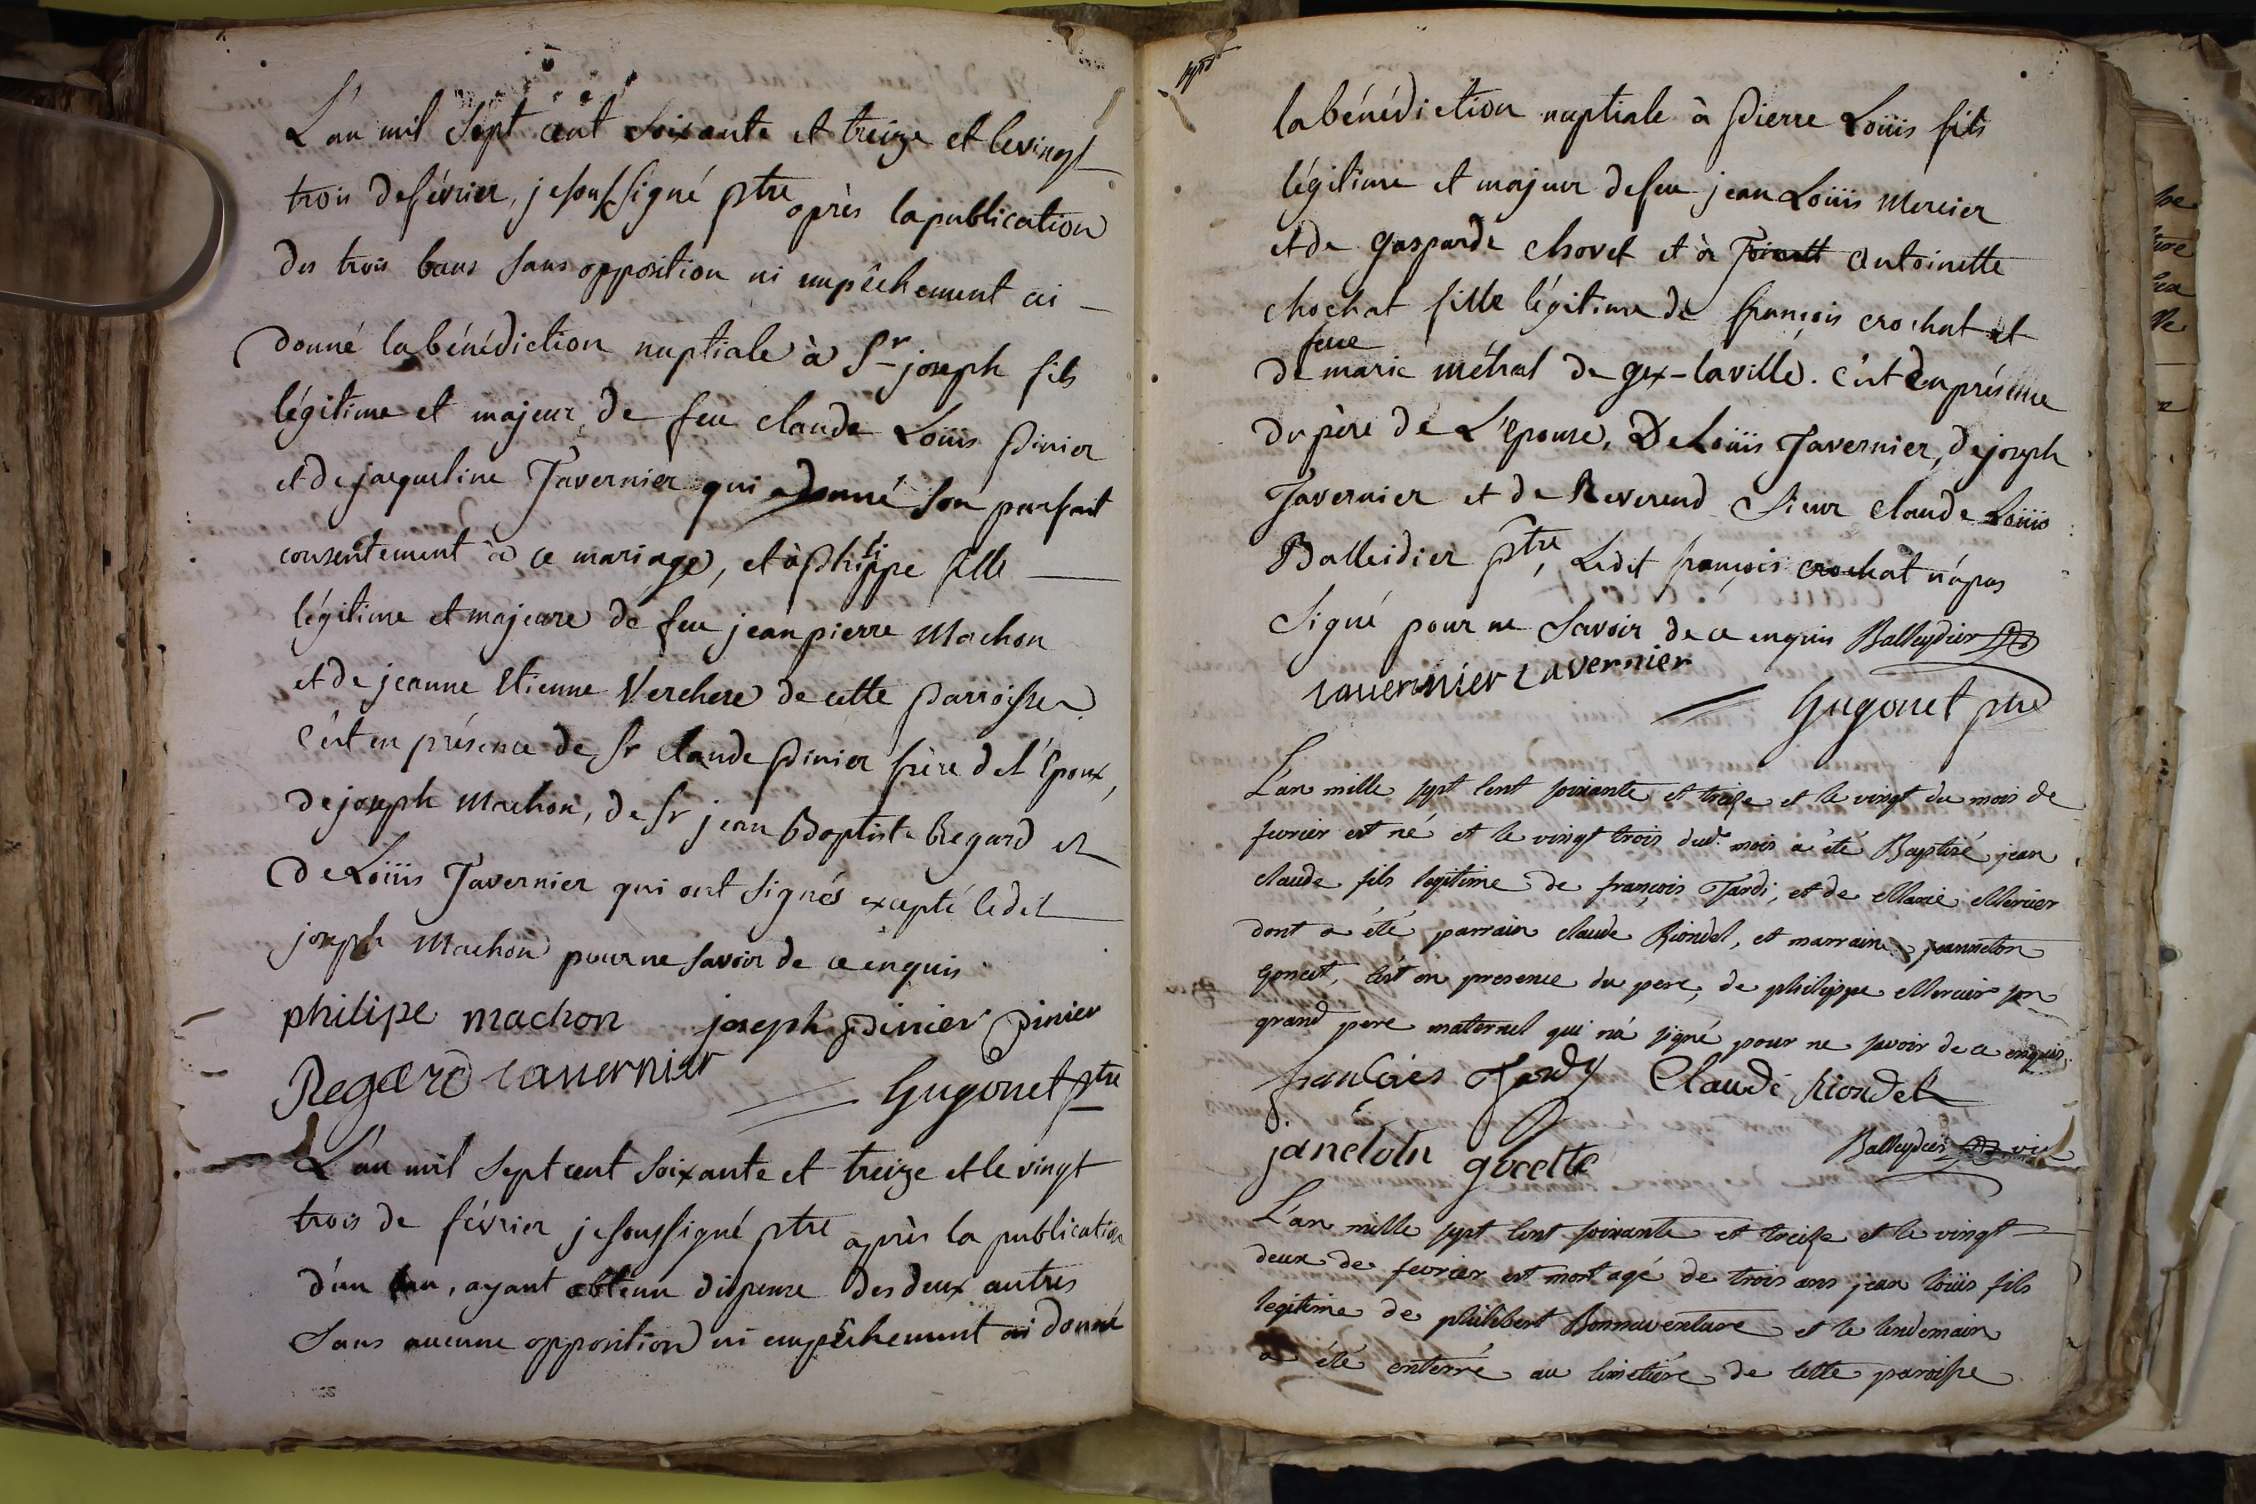 L'an mil sept cent soixante et treize et le vingt
trois de février, je soussigné ptre après la publication
des trois bans sans opposition ni empêchement ai
donné la bénédiction nuptiale à Sr joseph fils
légitime et majeur de feu claude Loüis Pinier
et de jacqueline Tavernier qui a donné son parfait
consentement à ce mariage, et à Philippe fille
légitime et majeure de feu jean pierre Machon
et de jeanne Etienne Verchere de cette parroisse
c'est en présence de Sr claude Pinier frère de l'époux,
de joseph Machon, de Sr jean Baptiste Regard et
de Loüis Tavernier qui ont signés excepté ledit
joseph Machon pour ne savoir de ce enquis
philipe machon joseph pinier pinier
Regard tavernier Gugonet ptre
L'an mil sept cent soixante et treize et le vingt
trois de février je soussigné ptre après la publication
d'un ban, ayant obtenu dispense des deux autres
sans aucune opposition ni empêchement ai donné
la bénédiction nuptiale à Pierre Loüis fils
légitime et majeur de feu jean Loüis Mercier
et de gasparde chovet et à antoinette
chochat fille légitime de françois crochat et
feue
de marie métral de gex-la ville. c'est en présence
du père de L'épouse, De Loüis Tavernier, de joseph
Tavernier et de Reverend Sieur claude Loüis
Balleidier ptre, Ledit françois crochat n'a pas
signé pour ne savoir de ce enquis Balleydier
tavernier tavernier
Gugonet ptre
L'an mille sept cent soixante et treize et le vingt du mois de
fevrier est né et le vingt trois dud. mois a été Baptisé jean
claude fils legitime de françois Tardi, et de Marie Mercier
dont a été parrain claude Riondel, et marraine jeanneton
c'est en presence du pere, de philippe Mercier son
grand pere maternel qui n'a signé pour ne savoir de ce enquis.
françois Tardy Claude Riondel
janeton gocette
Balleydier vic
L'an mille sept cent soixante et treize et le vingt
deux de fevrier est mort agé de trois ans jean loüis fils
legitime de philibert Bonnaventure et le lendemain
a été enterré au cimetiére de cette paroisse